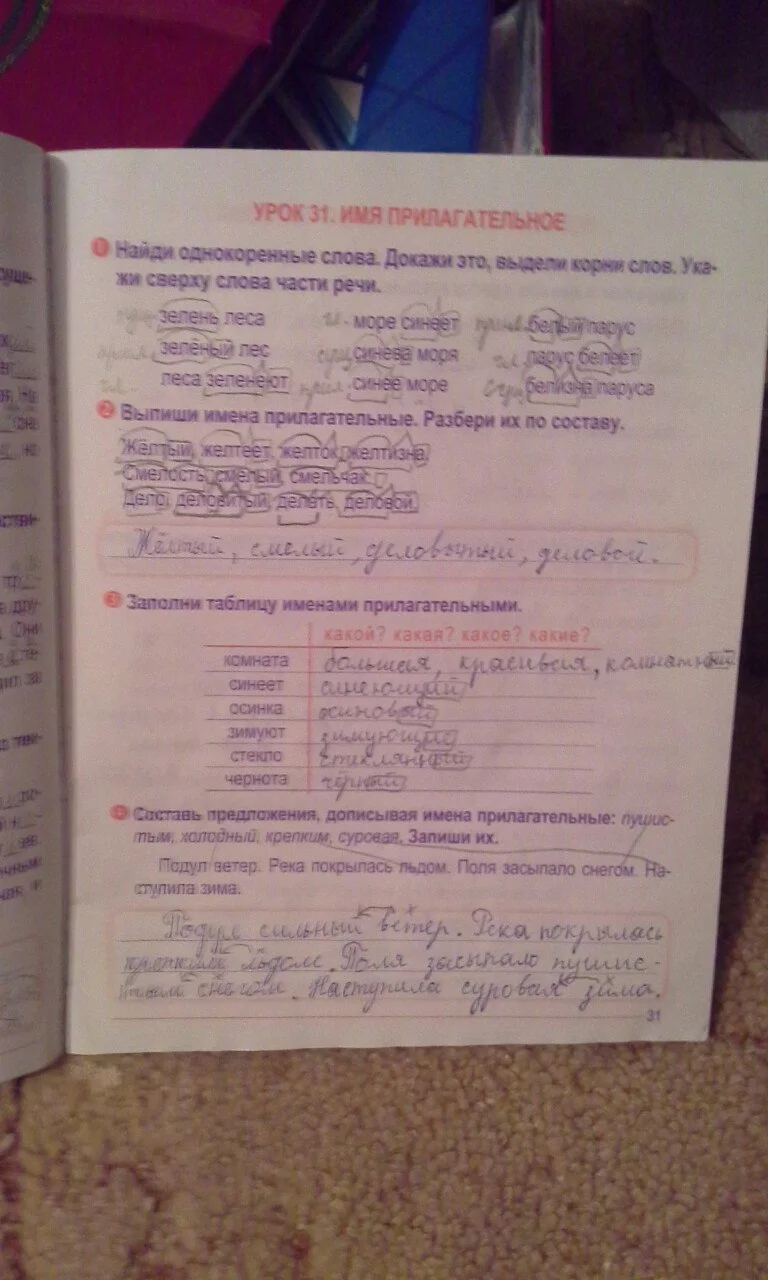 УРОК 31. ИМЯ ПРИЛАГАТЕЛЬНОЕ
1 Найди однокоренные слова. Докажи это, выдели корни слов. Ука-
жи сверху слова части речи.
сущ. зелень леса гл. море синеет прил. белый парус
прил. зелёный лес сущ. синева моря гл. парус белеет
гл. леса зеленеют прил. синее море сущ. белизна паруса
2 Выпиши имена прилагательные. Разбери их по составу.
Жёлтый, желтеет, желток, желтизна.
Смелость, смелый, смельчак.
Дело, деловитый, делать, деловой.
Жёлтый, смелый, деловытый, деловой.
3 Заполни таблицу именами прилагательными.
какой? какая? какое? какие?
комната большая, красивая, комнатный
синеет синеющий
осинка осиновый
зимуют зимующие
стекло стеклянный
чернота чёрный
4 Составь предложения, дописывая имена прилагательные: пушис-
тым, холодный, крепким, суровая. Запиши их.
Подул ветер. Река покрылась льдом. Поля засыпало снегом. На-
ступила зима.
Подул сильный ветер. Река покрылась
крепким льдом. Поля засыпало пушис-
тым снегом. Наступила суровая зима.
31